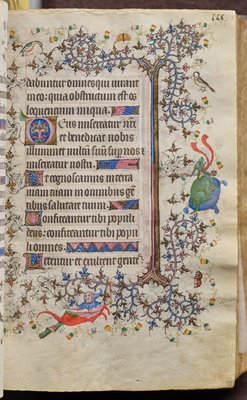 dabuntur omnes qui iurant
in eo: quia obstructum est os
loquentium iniqua.
Deus misereatur nri
et benedicat nobis
illuminet vultū suū sup nos et
misereatur nostri.
Ut cognoscamus in terra
viam tuam in omnibus gē
tibus salutare tuum.
Confiteantur tibi populi
deus: confiteantur tibi popu
li omnes.
Letentur et exultent gente